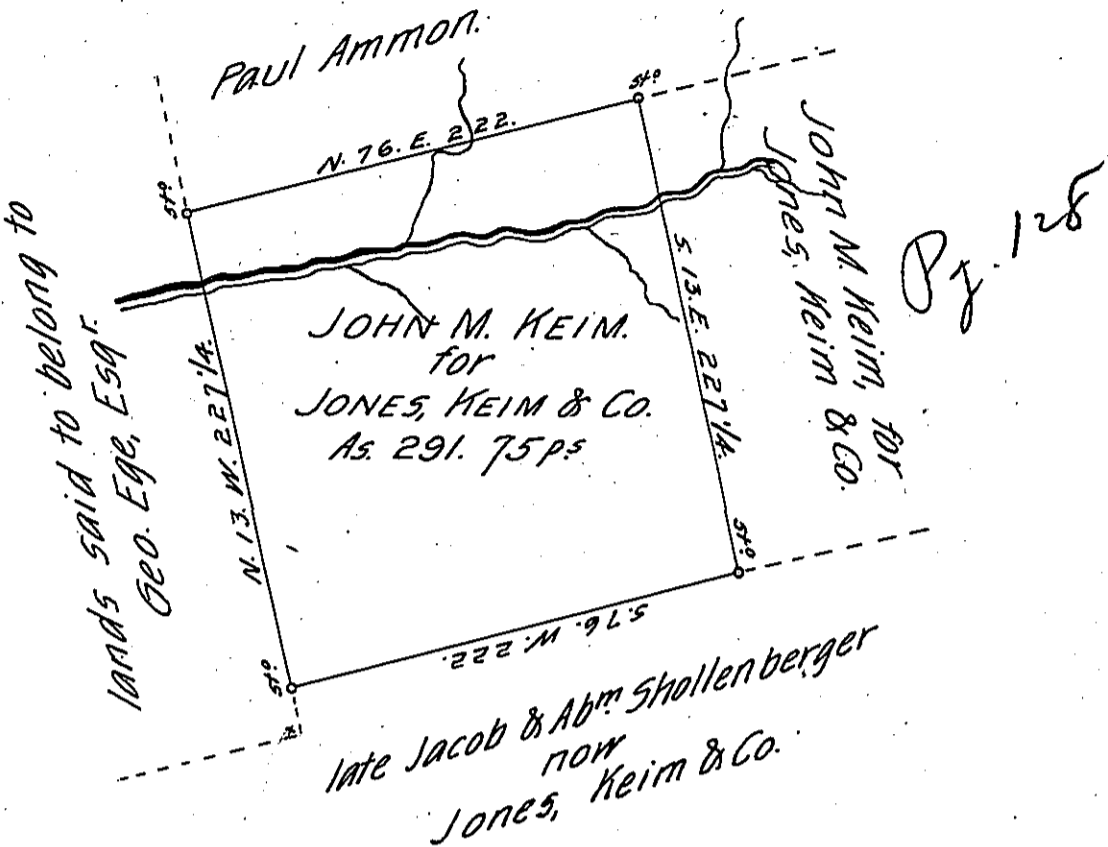 Paul Ammon.
sto
N. 76. E. 222.
sto
lands said to belong to
Geo. Ege, Esqr.
N. 13. W. 227 1/4.
JOHN M. KEIM.
for
JONES, KEIM & Co.
As. 291. 75 ps
S 13. E. 227 1/4.
John M. Keim, for
Jones, Keim & Co.
Pg. 128
sto
S. 76. W. 222.
sto
late Jacob & Abm Shollenberger
now
Jones, Keim & Co.